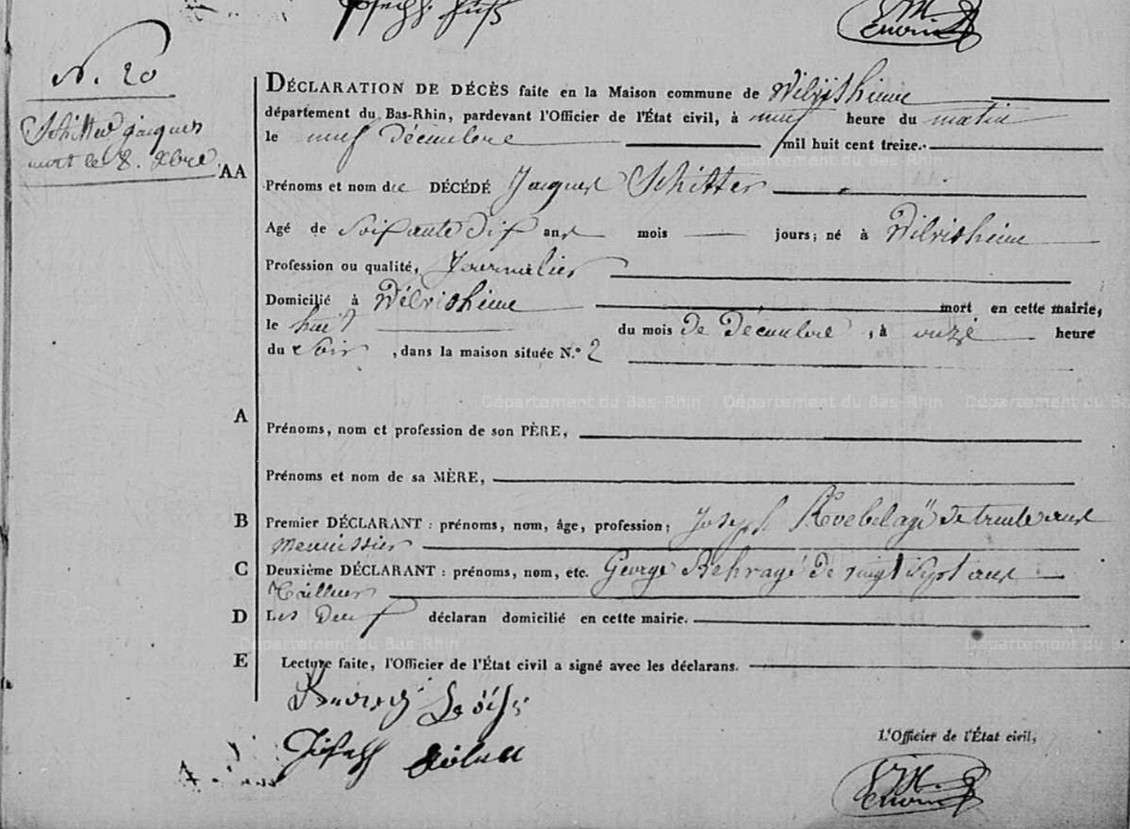 N. 20
Schitter jacques
mort le 8. Xbre
DÉCLARATION DE DÉCÈS faite en la Maison commune de Wilvisheime
département du Bas-Rhin, pardevant l'Officier de l'État civil, à neuf heure du matin
le neuf décembre mil huit cent treize.
AA
Prénoms et nom du DÉCÉDÉ Jacques Schitter
Agé de Soixante Dix ans mois jours; né à Wilvisheime
Profession ou qualité, Journalier
Domicilié à Wilvisheime mort en cette mairie,
le huit du mois de Décembre, à onze heure
du Soir, dans la maison située N.º 2
Département du Bas-Rhin Département du Bas-Rhin Département du Bas
A
Prénoms, nom et profession de son PÈRE,
Prénoms et nom de sa MÈRE,
B Premier DÉCLARANT : prénoms, nom, âge, profession; Joseph agé de trente ans
Menuissier
C Deuxième DÉCLARANT : prénoms, nom, etc. George agé De vingt Sept ans
Tailleur
D Les Deux déclaran domicilié en cette mairie.
E Lecture faite, l'Officier de l'État civil a signé avec les déclarans.
L'Officier de l'État civil,